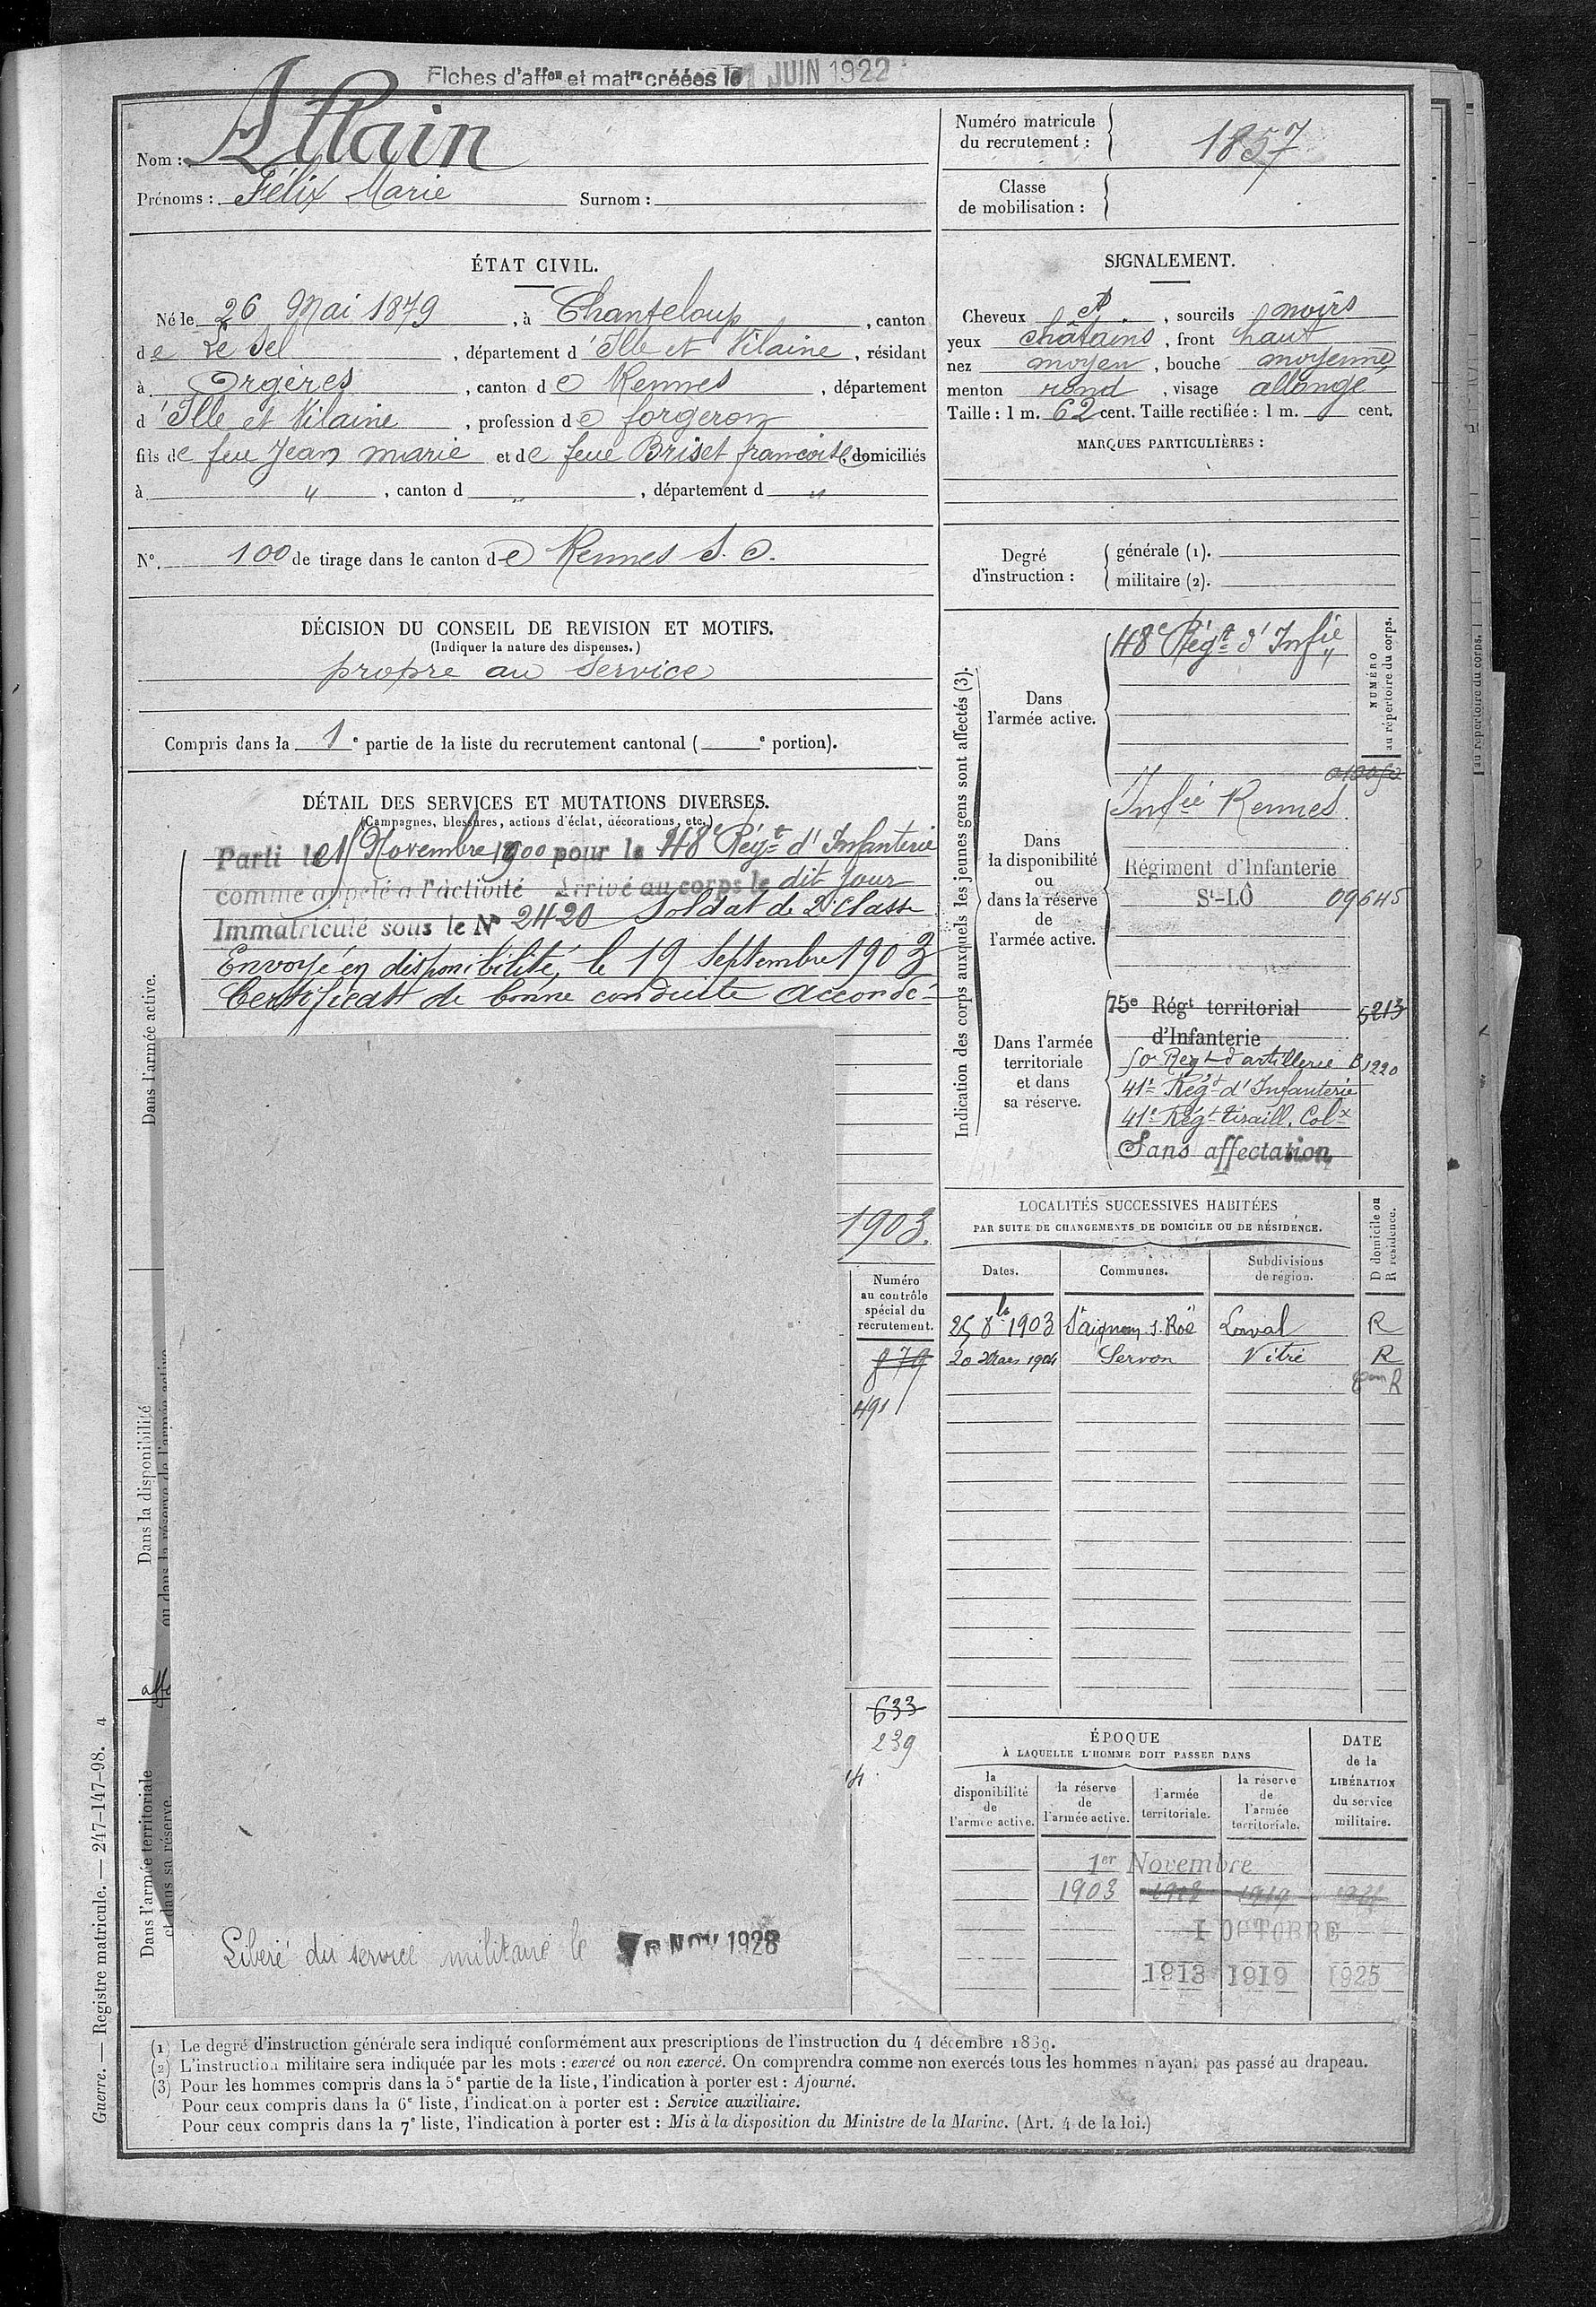 Fiches d'aff^on et mat^re créées le 1 JUIN 1922
Nom : Allain
Prénoms : Félix Marie Surnom :
Numéro matricule du recrutement : 1857
Classe de mobilisation :
ÉTAT CIVIL.
Né le 26 Mai 1879, à Chanteloup, canton
de Le Sel, département d'Ille et Vilaine, résidant
à Orgères, canton de Rennes, département
d'Ille et Vilaine, profession de forgeron
fils de feu Jean marie et de feue Briset francoise, domiciliés
à " , canton d " , département d "
N° 100 de tirage dans le canton de Rennes S. O.
DÉCISION DU CONSEIL DE REVISION ET MOTIFS.
(Indiquer la nature des dispenses.)
propre au service
Compris dans la 1e partie de la liste du recrutement cantonal ( e portion).
DÉTAIL DES SERVICES ET MUTATIONS DIVERSES.
(Campagnes, blessures, actions d'éclat, décorations, etc.)
Dans l'armée active.
Parti le Novembre 1900 pour le 48e Régt d'Infanterie
comme appelé à l'activité Arrivé au corps le dit jour
Immatriculé sous le N° 2420 Soldat de 2e classe
Envoyé en disponibilité, le 19 Septembre 1903
Certificat de bonne conduite accordé
1903.
Numéro
au contrôle
spécial du
recrutement.
879
491
Dans la disponibilité
ou dans la réserve de l'armée active
aff
633
239
14
Dans l'armée territoriale
et dans sa réserve.
Libéré du service militaire le NOV 1928
SIGNALEMENT.
Cheveux et, sourcils noirs
yeux châtains, front haut
nez moyen, bouche moyenne
menton rond, visage allongé
Taille : 1 m. 62 cent. Taille rectifiée : 1 m. cent.
MARQUES PARTICULIÈRES :
Degré d'instruction :
générale (1).
militaire (2).
Indication des corps auxquels les jeunes gens sont affectés (3).
NUMÉRO
au répertoire du corps.
Dans
l'armée active.
48e Régt d'Infie
Dans
la disponibilité
ou
dans la réserve
de
l'armée active.
Infie Rennes
Régiment d'Infanterie
St-LÔ 09645
Dans l'armée
territoriale
et dans
sa réserve.
75e Régt territorial 5213
d'Infanterie
50e Régt d'artillerie B1220
41e Régt d'Infanterie
41e Régt tiraill. Colx
Sans affectation
LOCALITÉS SUCCESSIVES HABITÉES
PAR SUITE DE CHANGEMENTS DE DOMICILE OU DE RÉSIDENCE.
Dates. Communes. Subdivisions de région. D domicile ou R résidence.
25 8bre 1903 St aignan s. Roë Laval R
20 Mars 1904 Servon Vitré R
R
ÉPOQUE
À LAQUELLE L'HOMME DOIT PASSER DANS
la disponibilité de l'armée active.
la réserve de l'armée active.
l'armée territoriale.
la réserve de l'armée territoriale.
DATE de la LIBÉRATION du service militaire.
1er Novembre
1903
1 OCTOBRE
1913 1919 1925
(1) Le degré d'instruction générale sera indiqué conformément aux prescriptions de l'instruction du 4 décembre 1889.
(2) L'instruction militaire sera indiquée par les mots : exercé ou non exercé. On comprendra comme non exercés tous les hommes n'ayant pas passé au drapeau.
(3) Pour les hommes compris dans la 5e partie de la liste, l'indication à porter est : Ajourné.
Pour ceux compris dans la 6e liste, l'indication à porter est : Service auxiliaire.
Pour ceux compris dans la 7e liste, l'indication à porter est : Mis à la disposition du Ministre de la Marine. (Art. 4 de la loi.)
Guerre. — Registre matricule. — 247-147-98. 4
au répertoire du corps.